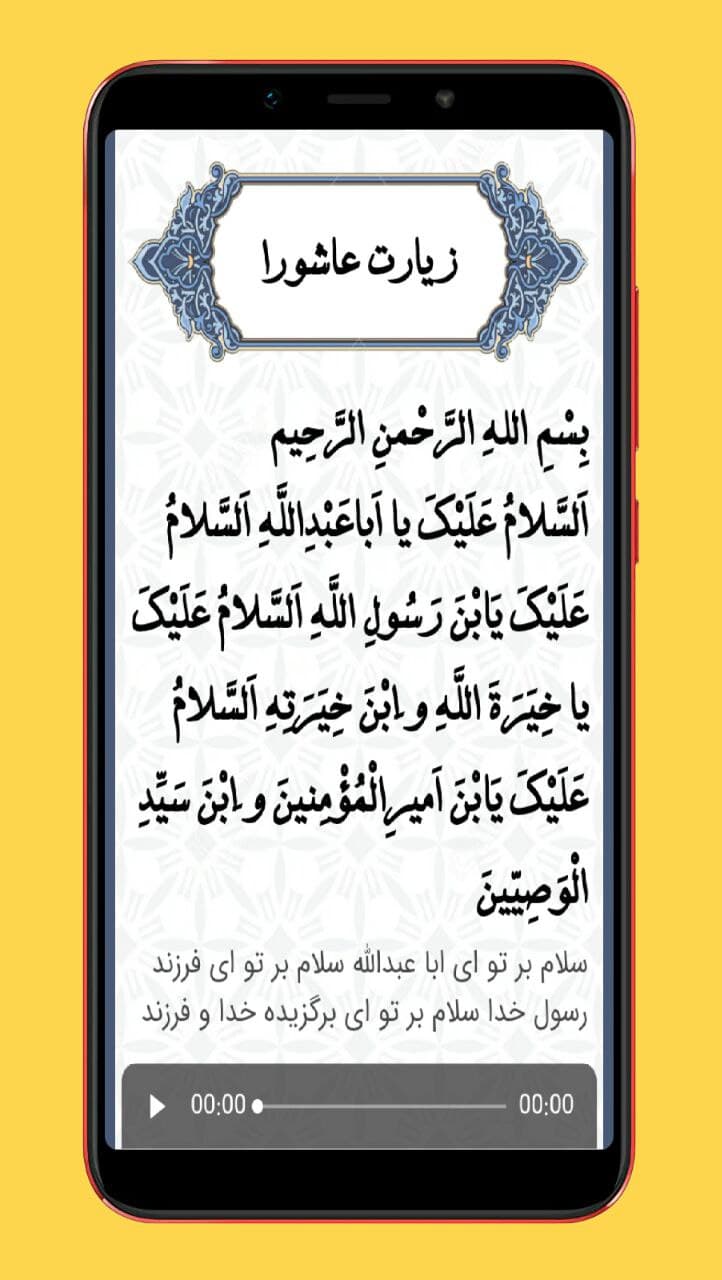 زیارت عاشورا
بِسْمِ اللهِ الرَّحْمنِ الرَّحِیم
اَلسَّلامُ عَلَیْکَ یا اَباعَبْدِاللَّهِ اَلسَّلامُ
عَلَیْکَ یَابْنَ رَسُولِ اللَّهِ اَلسَّلامُ عَلَیْکَ
یا خِیَرَةَ اللَّهِ و َابْنَ خِیَرَتِهِ اَلسَّلامُ
عَلَیْکَ یَابْنَ اَمیرِالْمُؤْمِنینَ و َابْنَ سَیِّدِ
الْوَصِیّینَ
سلام بر تو ای ابا عبدالله سلام بر تو ای فرزند
رسول خدا سلام بر تو ای برگزیده خدا و فرزند
00:00 00:00